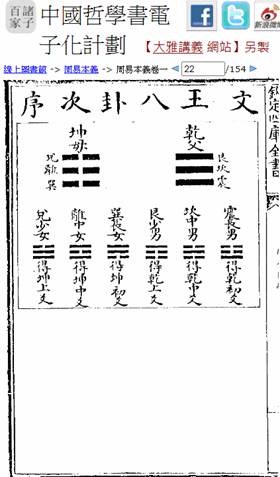 諸子百家 中國哲學書電子化計劃
【大雅講義 網站】另製
新浪微博
線上圖書館 -> 周易本義 -> 周易本義卷一 22 /154
欽定四庫全書
文王八卦次序
乾父
艮坎震
坤母
兌離巽
震長男 得乾初爻
坎中男 得乾中爻
艮少男 得乾上爻
巽長女 得坤初爻
離中女 得坤中爻
兌少女 得坤上爻